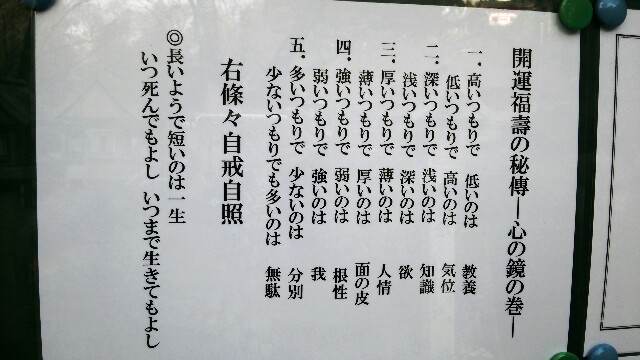 開運福壽の秘傳―心の鏡の巻―
一．高いつもりで 低いのは 教養
低いつもりで 高いのは 気位
二．深いつもりで 浅いのは 知識
浅いつもりで 深いのは 欲
三．厚いつもりで 薄いのは 人情
薄いつもりで 厚いのは 面の皮
四．強いつもりで 弱いのは 根性
弱いつもりで 強いのは 我
五．多いつもりで 少ないのは 分別
少ないつもりでも多いのは 無駄
右條々自戒自照
◎長いようで短いのは一生
いつ死んでもよし いつまで生きてもよし